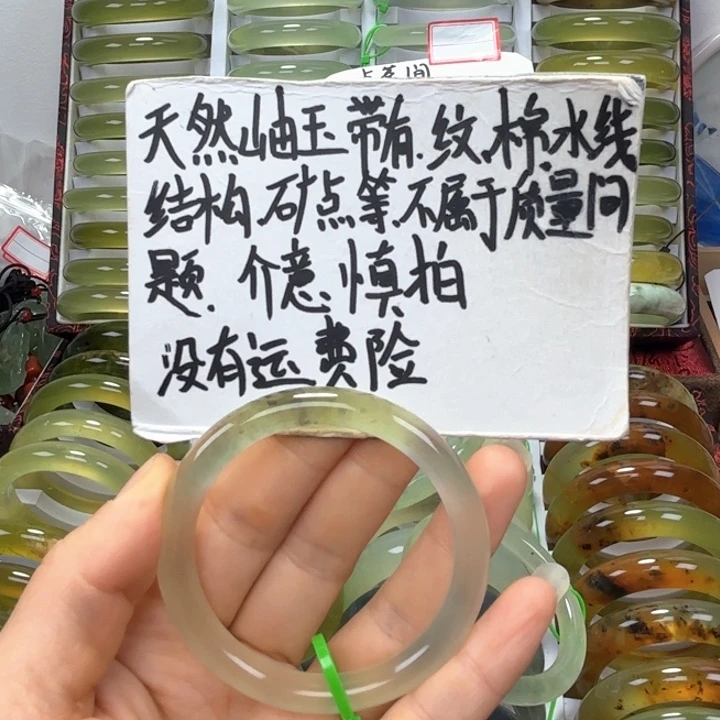 天然岫玉带有.纹.棉.水线
结构.矿点等.不属于质量问
题.介意.慎拍
没有运费险